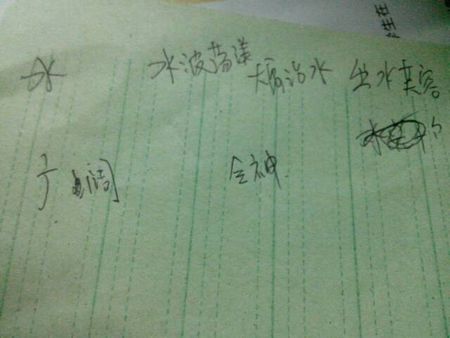 水 水波荡漾 大禹治水 出水芙容
广阔 全神